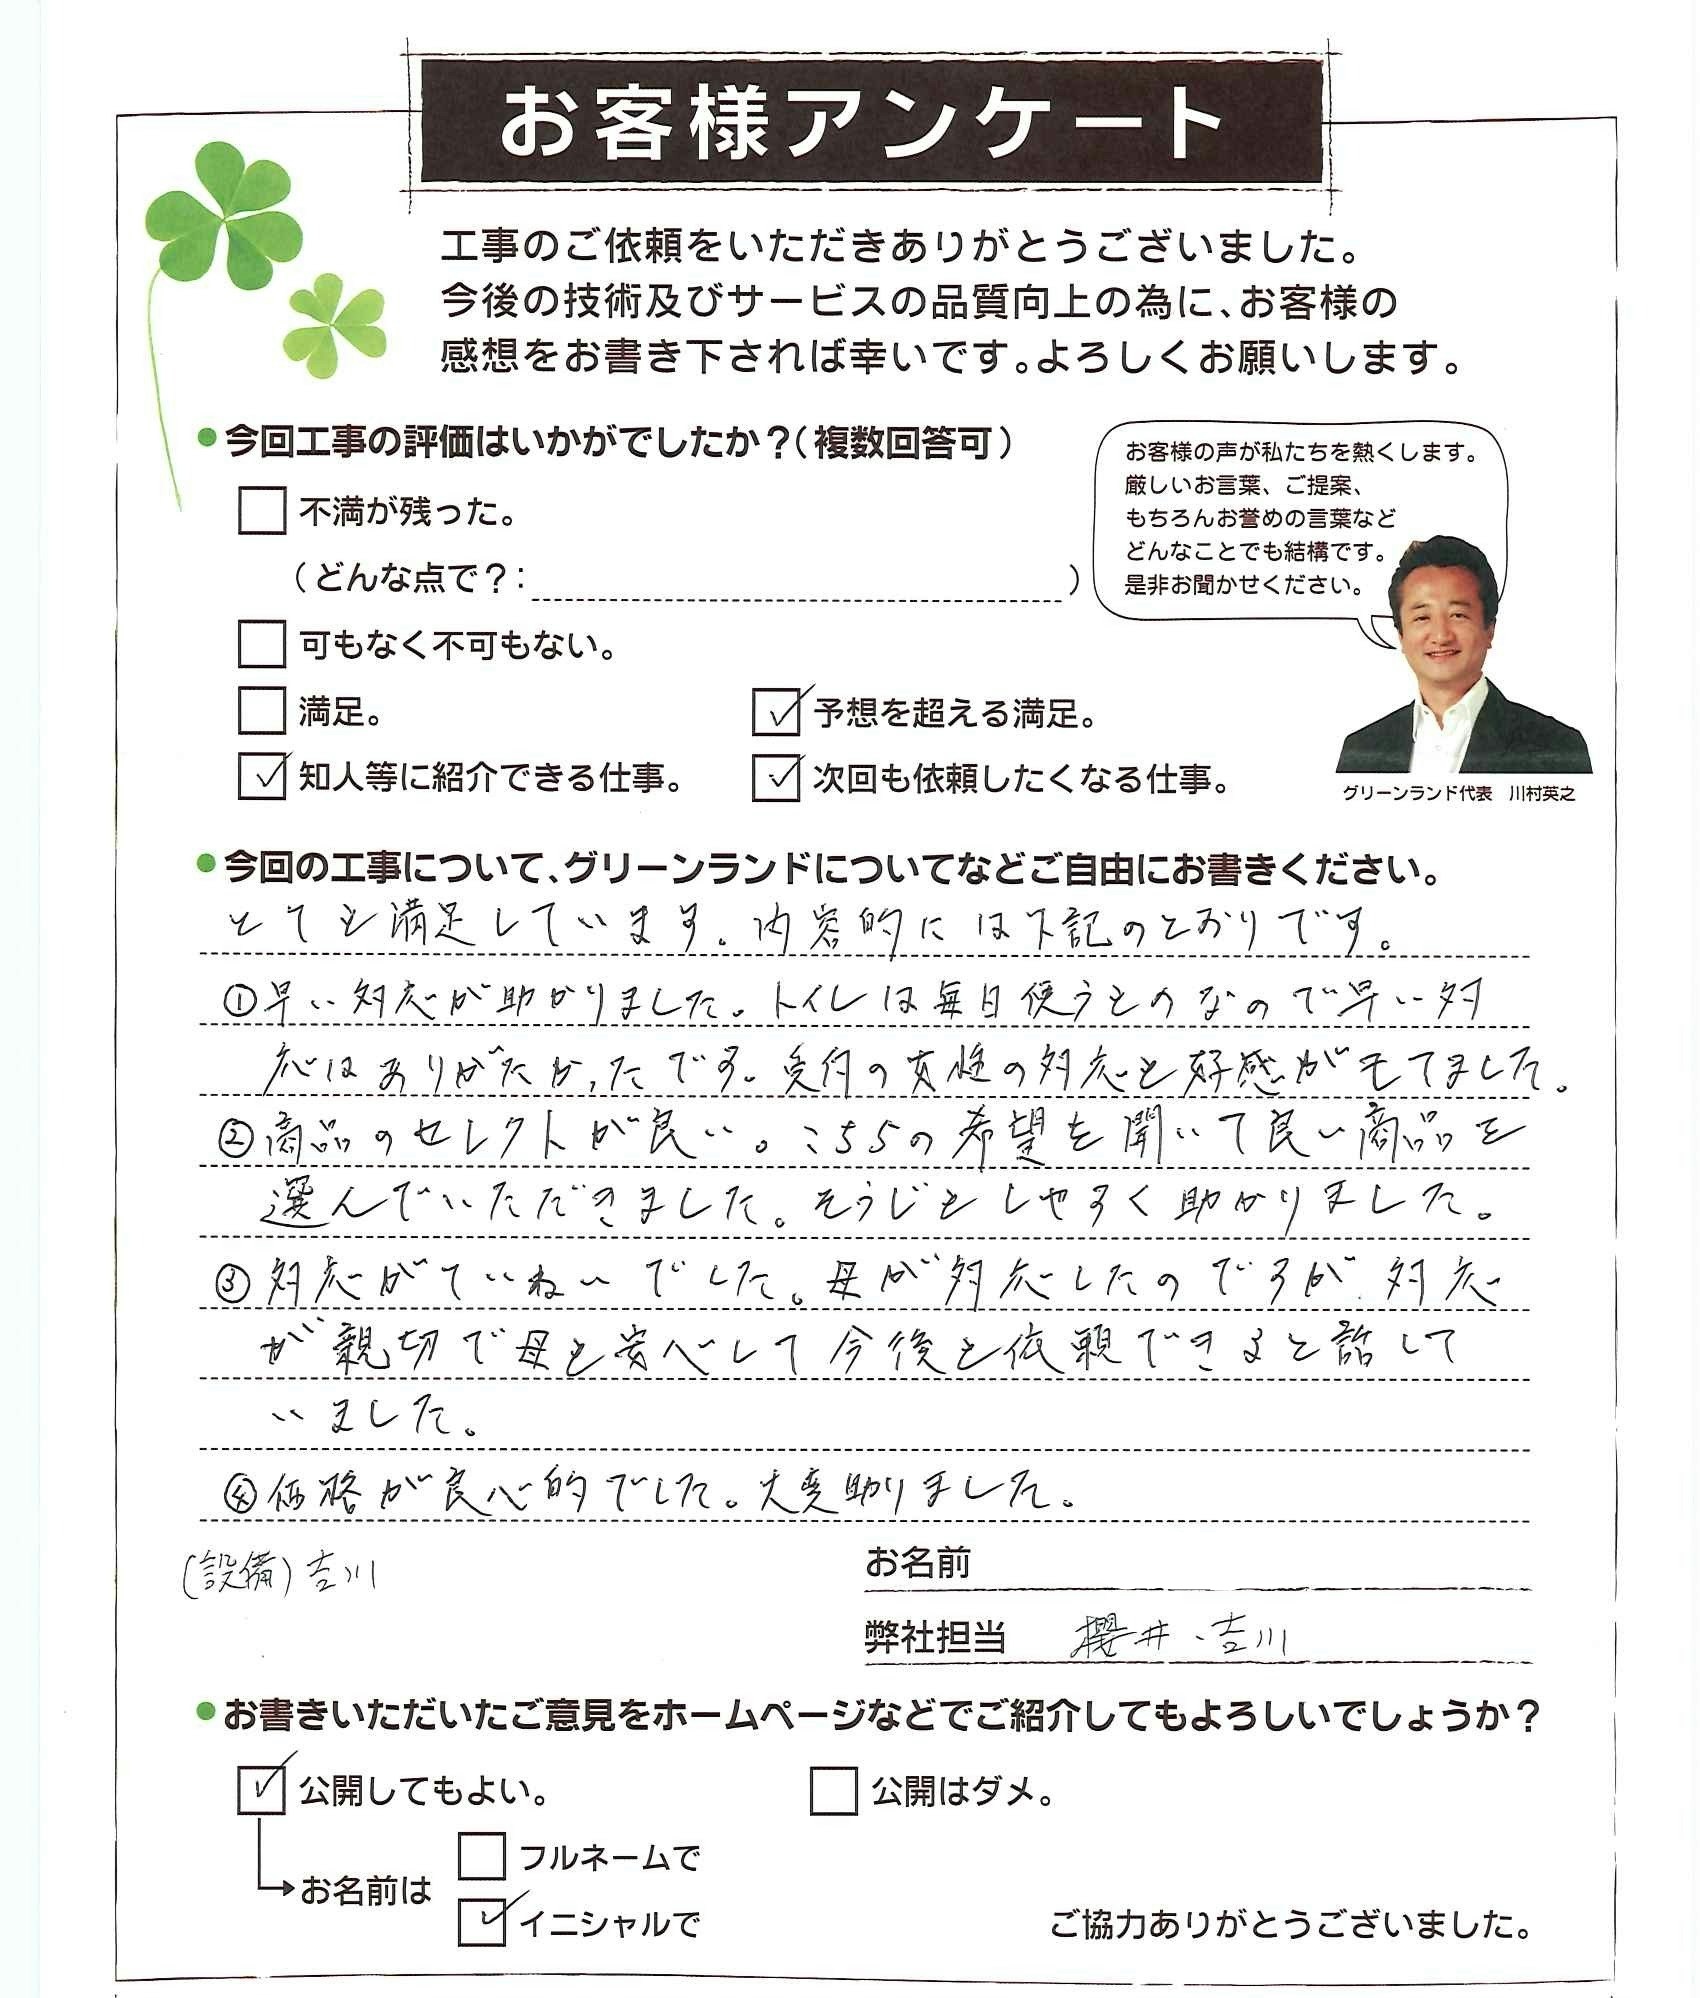 お客様アンケート
工事のご依頼をいただきありがとうございました。
今後の技術及びサービスの品質向上の為に、お客様の
感想をお書き下されば幸いです。よろしくお願いします。
●今回工事の評価はいかがでしたか？(複数回答可)
お客様の声が私たちを熱くします。
厳しいお言葉、ご提案、
もちろんお誉めの言葉など
どんなことでも結構です。
是非お聞かせください。
グリーンランド代表　川村英之
□ 不満が残った。
(どんな点で？: )
□ 可もなく不可もない。
□ 満足。 ☑ 予想を超える満足。
☑ 知人等に紹介できる仕事。 ☑ 次回も依頼したくなる仕事。
●今回の工事について、グリーンランドについてなどご自由にお書きください。
とても満足しています。内容的には下記のとおりです。
①早い対応が助かりました。トイレは毎日使うものなので早い対
応はありがたかったです。受付の女性の対応も好感がもてました。
②商品のセレクトが良い。こちらの希望を聞いて良い商品を
選んでいただきました。そうじもしやすく助かりました。
③対応がていねいでした。母が対応したのですが対応
が親切で母も安心して今後も依頼できると話して
いました。
④価格が良心的でした。大変助りました。
(設備)吉川
お名前
弊社担当　櫻井、吉川
●お書きいただいたご意見をホームページなどでご紹介してもよろしいでしょうか？
☑ 公開してもよい。 □ 公開はダメ。
お名前は
□ フルネームで
☑ イニシャルで
ご協力ありがとうございました。